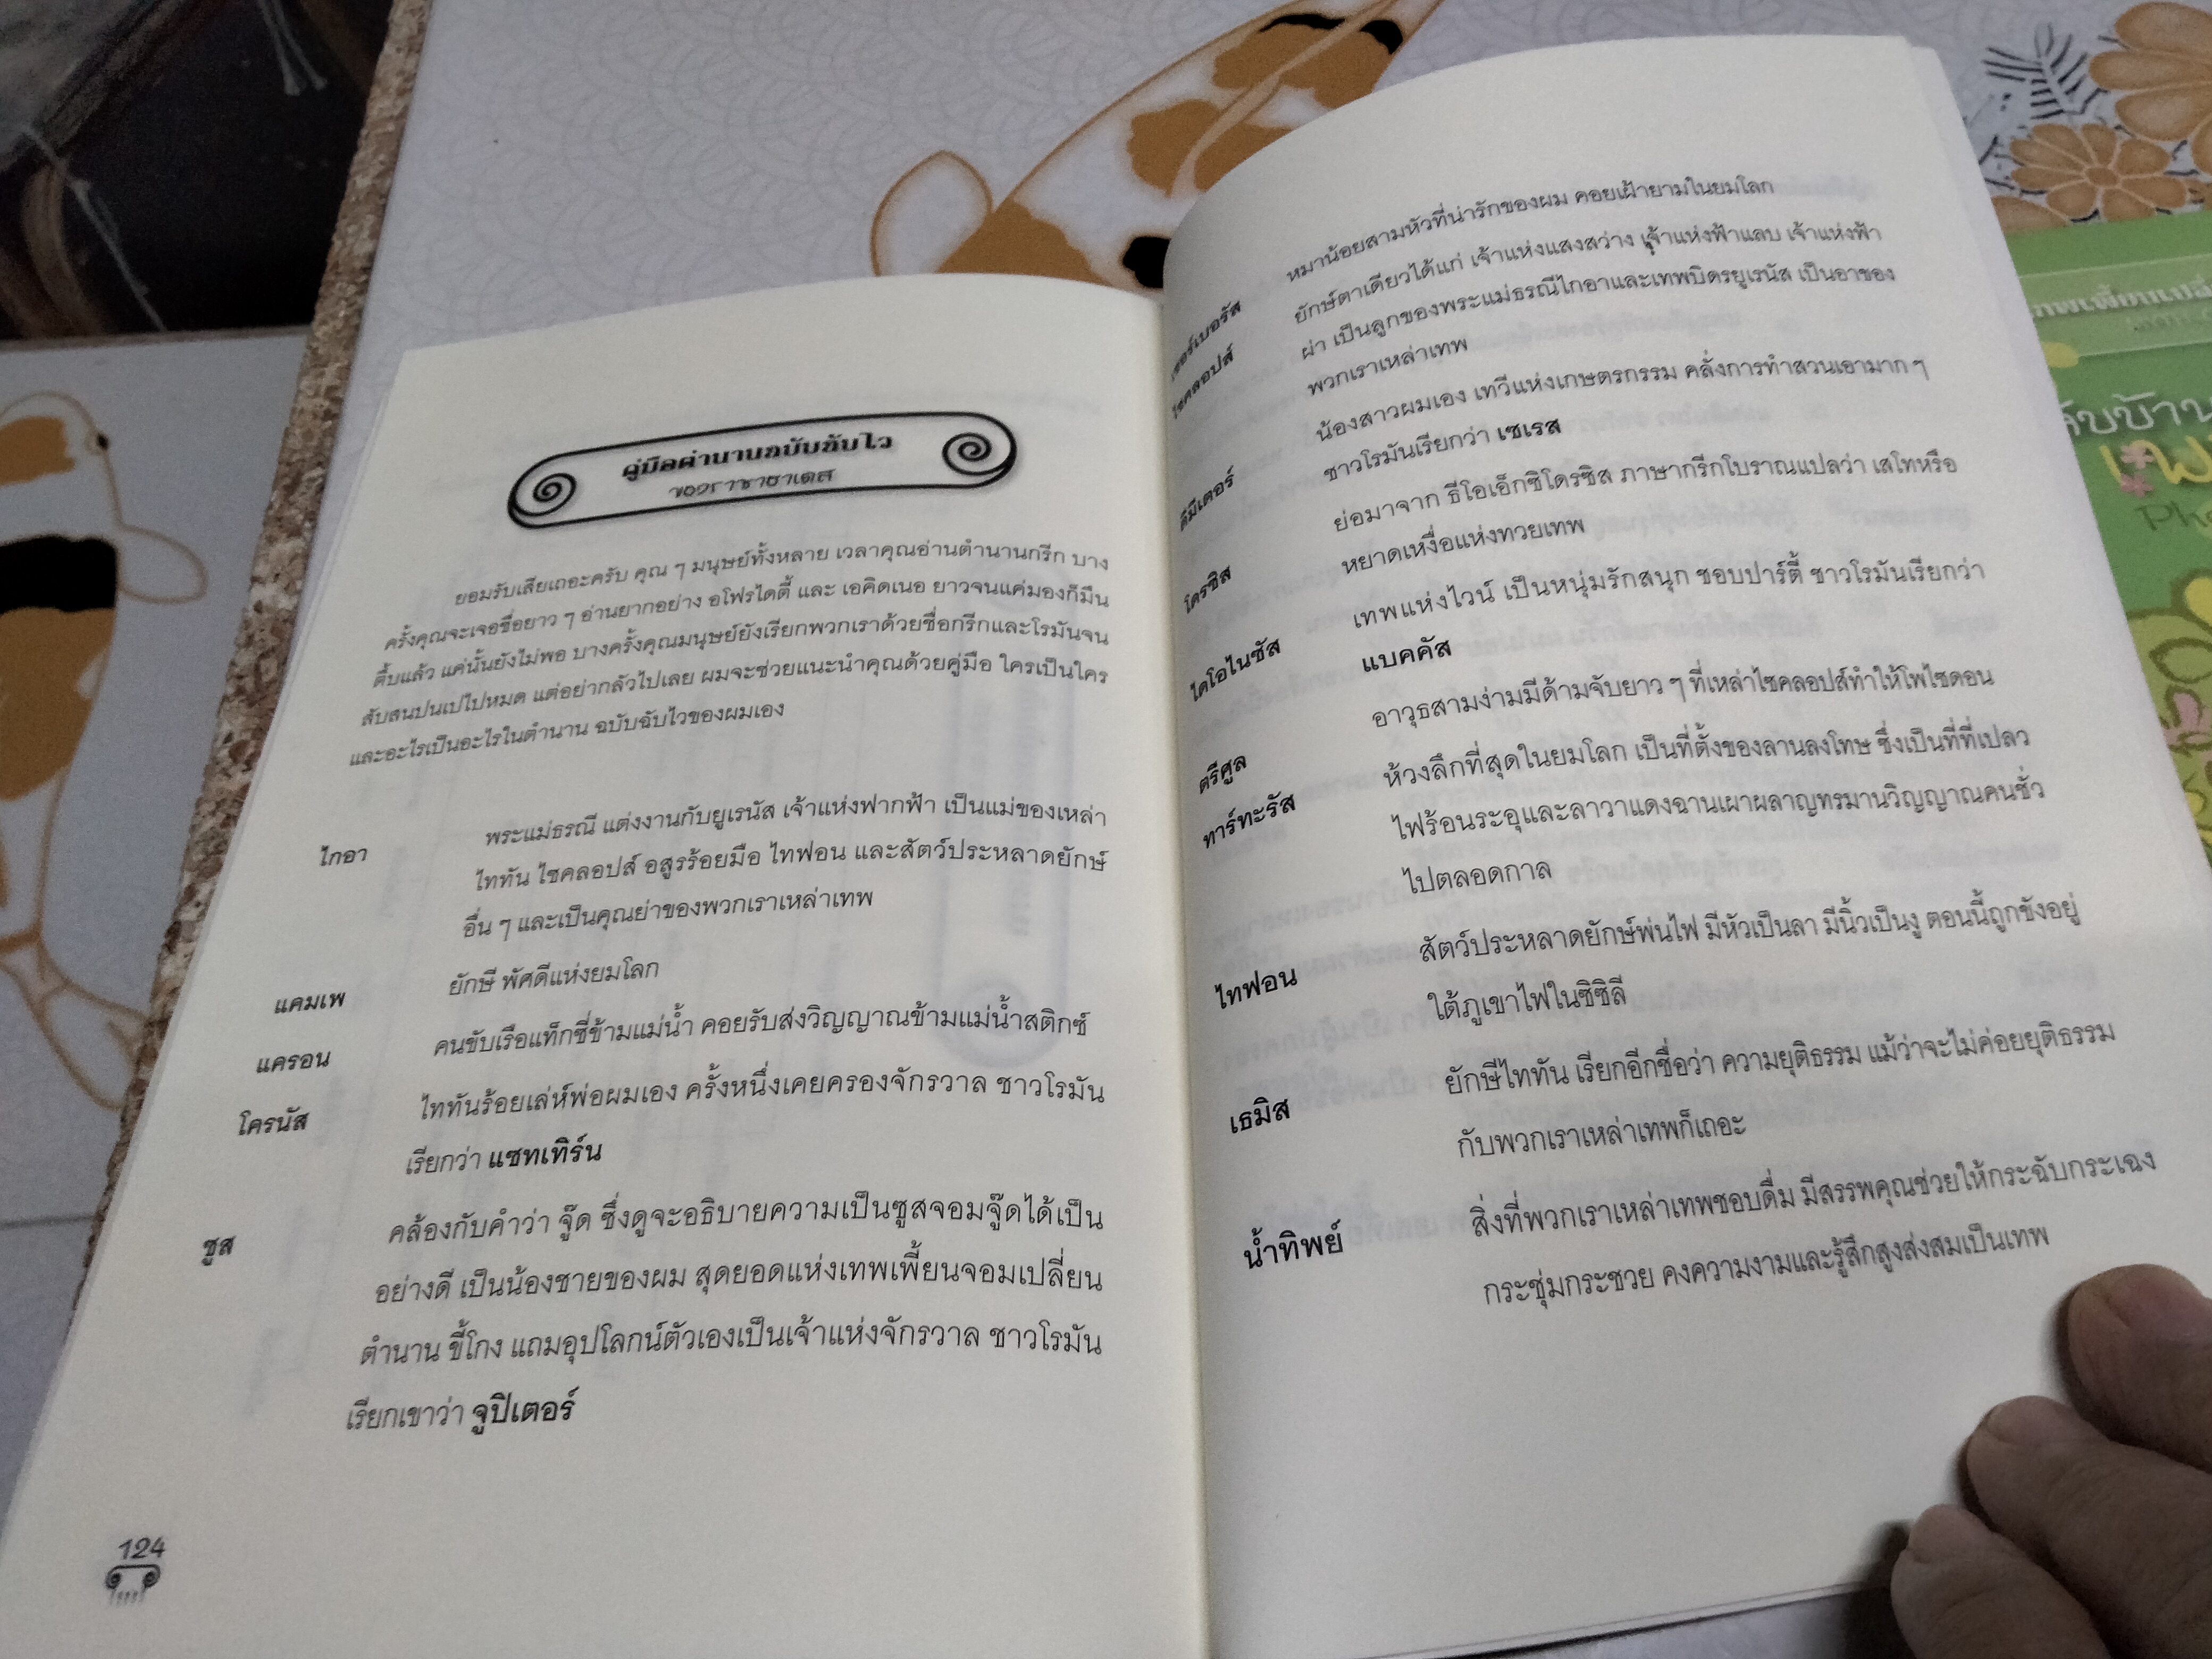 คู่มือตำนานฉบับฉับไว
ของราชาฮาเดส
ยอมรับเสียเถอะครับ คุณ ๆ มนุษย์ทั้งหลาย เวลาคุณอ่านตำนานกรีก บาง
ครั้งคุณจะเจอชื่อยาว ๆ อ่านยากอย่าง อโฟรไดตี้ และ เอคิดเนอ ยาวจนแค่มองก็มึน
ตึ้บแล้ว แค่นั้นยังไม่พอ บางครั้งคุณมนุษย์ยังเรียกพวกเราด้วยชื่อกรีกและโรมันจน
สับสนปนเปไปหมด แต่อย่ากลัวไปเลย ผมจะช่วยแนะนำคุณด้วยคู่มือ ใครเป็นใคร
และอะไรเป็นอะไรในตำนาน ฉบับฉับไวของผมเอง
ไกอา พระแม่ธรณี แต่งงานกับยูเรนัส เจ้าแห่งฟากฟ้า เป็นแม่ของเหล่า
ไททัน ไซคลอปส์ อสูรร้อยมือ ไทฟอน และสัตว์ประหลาดยักษ์
อื่น ๆ และเป็นคุณย่าของพวกเราเหล่าเทพ
แคมเพ ยักษี พัศดีแห่งยมโลก
แครอน คนขับเรือแท็กซี่ข้ามแม่น้ำ คอยรับส่งวิญญาณข้ามแม่น้ำสติกซ์
โครนัส ไททันร้อยเล่ห์พ่อผมเอง ครั้งหนึ่งเคยครองจักรวาล ชาวโรมัน
เรียกว่า แซทเทิร์น
ซูส คล้องกับคำว่า จู๊ด ซึ่งดูจะอธิบายความเป็นซูสจอมจู๊ดได้เป็น
อย่างดี เป็นน้องชายของผม สุดยอดแห่งเทพเพี้ยนจอมเปลี่ยน
ตำนาน ขี้โกง แถมอุปโลกน์ตัวเองเป็นเจ้าแห่งจักรวาล ชาวโรมัน
เรียกเขาว่า จูปิเตอร์
124
เซอร์เบอรัส หมาน้อยสามหัวที่น่ารักของผม คอยเฝ้ายามในยมโลก
ไซคลอปส์ ยักษ์ตาเดียวได้แก่ เจ้าแห่งแสงสว่าง เจ้าแห่งฟ้าแลบ เจ้าแห่งฟ้า
ผ่า เป็นลูกของพระแม่ธรณีไกอาและเทพบิดรยูเรนัส เป็นอาของ
พวกเราเหล่าเทพ
ดีมีเตอร์ น้องสาวผมเอง เทวีแห่งเกษตรกรรม คลั่งการทำสวนเอามาก ๆ
ชาวโรมันเรียกว่า เซเรส
โดรซิส ย่อมาจาก ธีโอเอ็กซิโดรซิส ภาษากรีกโบราณแปลว่า เสโทหรือ
หยาดเหงื่อแห่งทวยเทพ
ไดโอไนซัส เทพแห่งไวน์ เป็นหนุ่มรักสนุก ชอบปาร์ตี้ ชาวโรมันเรียกว่า
แบคคัส
ตรีศูล อาวุธสามง่ามมีด้ามจับยาว ๆ ที่เหล่าไซคลอปส์ทำให้โพไซดอน
ทาร์ทะรัส ห้วงลึกที่สุดในยมโลก เป็นที่ตั้งของลานลงโทษ ซึ่งเป็นที่ที่เปลว
ไฟร้อนระอุและลาวาแดงฉานเผาผลาญทรมานวิญญาณคนชั่ว
ไปตลอดกาล
ไทฟอน สัตว์ประหลาดยักษ์พ่นไฟ มีหัวเป็นลา มีนิ้วเป็นงู ตอนนี้ถูกขังอยู่
ใต้ภูเขาไฟในซิซิลี
เธมิส ยักษีไททัน เรียกอีกชื่อว่า ความยุติธรรม แม้ว่าจะไม่ค่อยยุติธรรม
กับพวกเราเหล่าเทพก็เถอะ
น้ำทิพย์ สิ่งที่พวกเราเหล่าเทพชอบดื่ม มีสรรพคุณช่วยให้กระฉับกระเฉง
กระชุ่มกระชวย คงความงามและรู้สึกสูงส่งสมเป็นเทพ